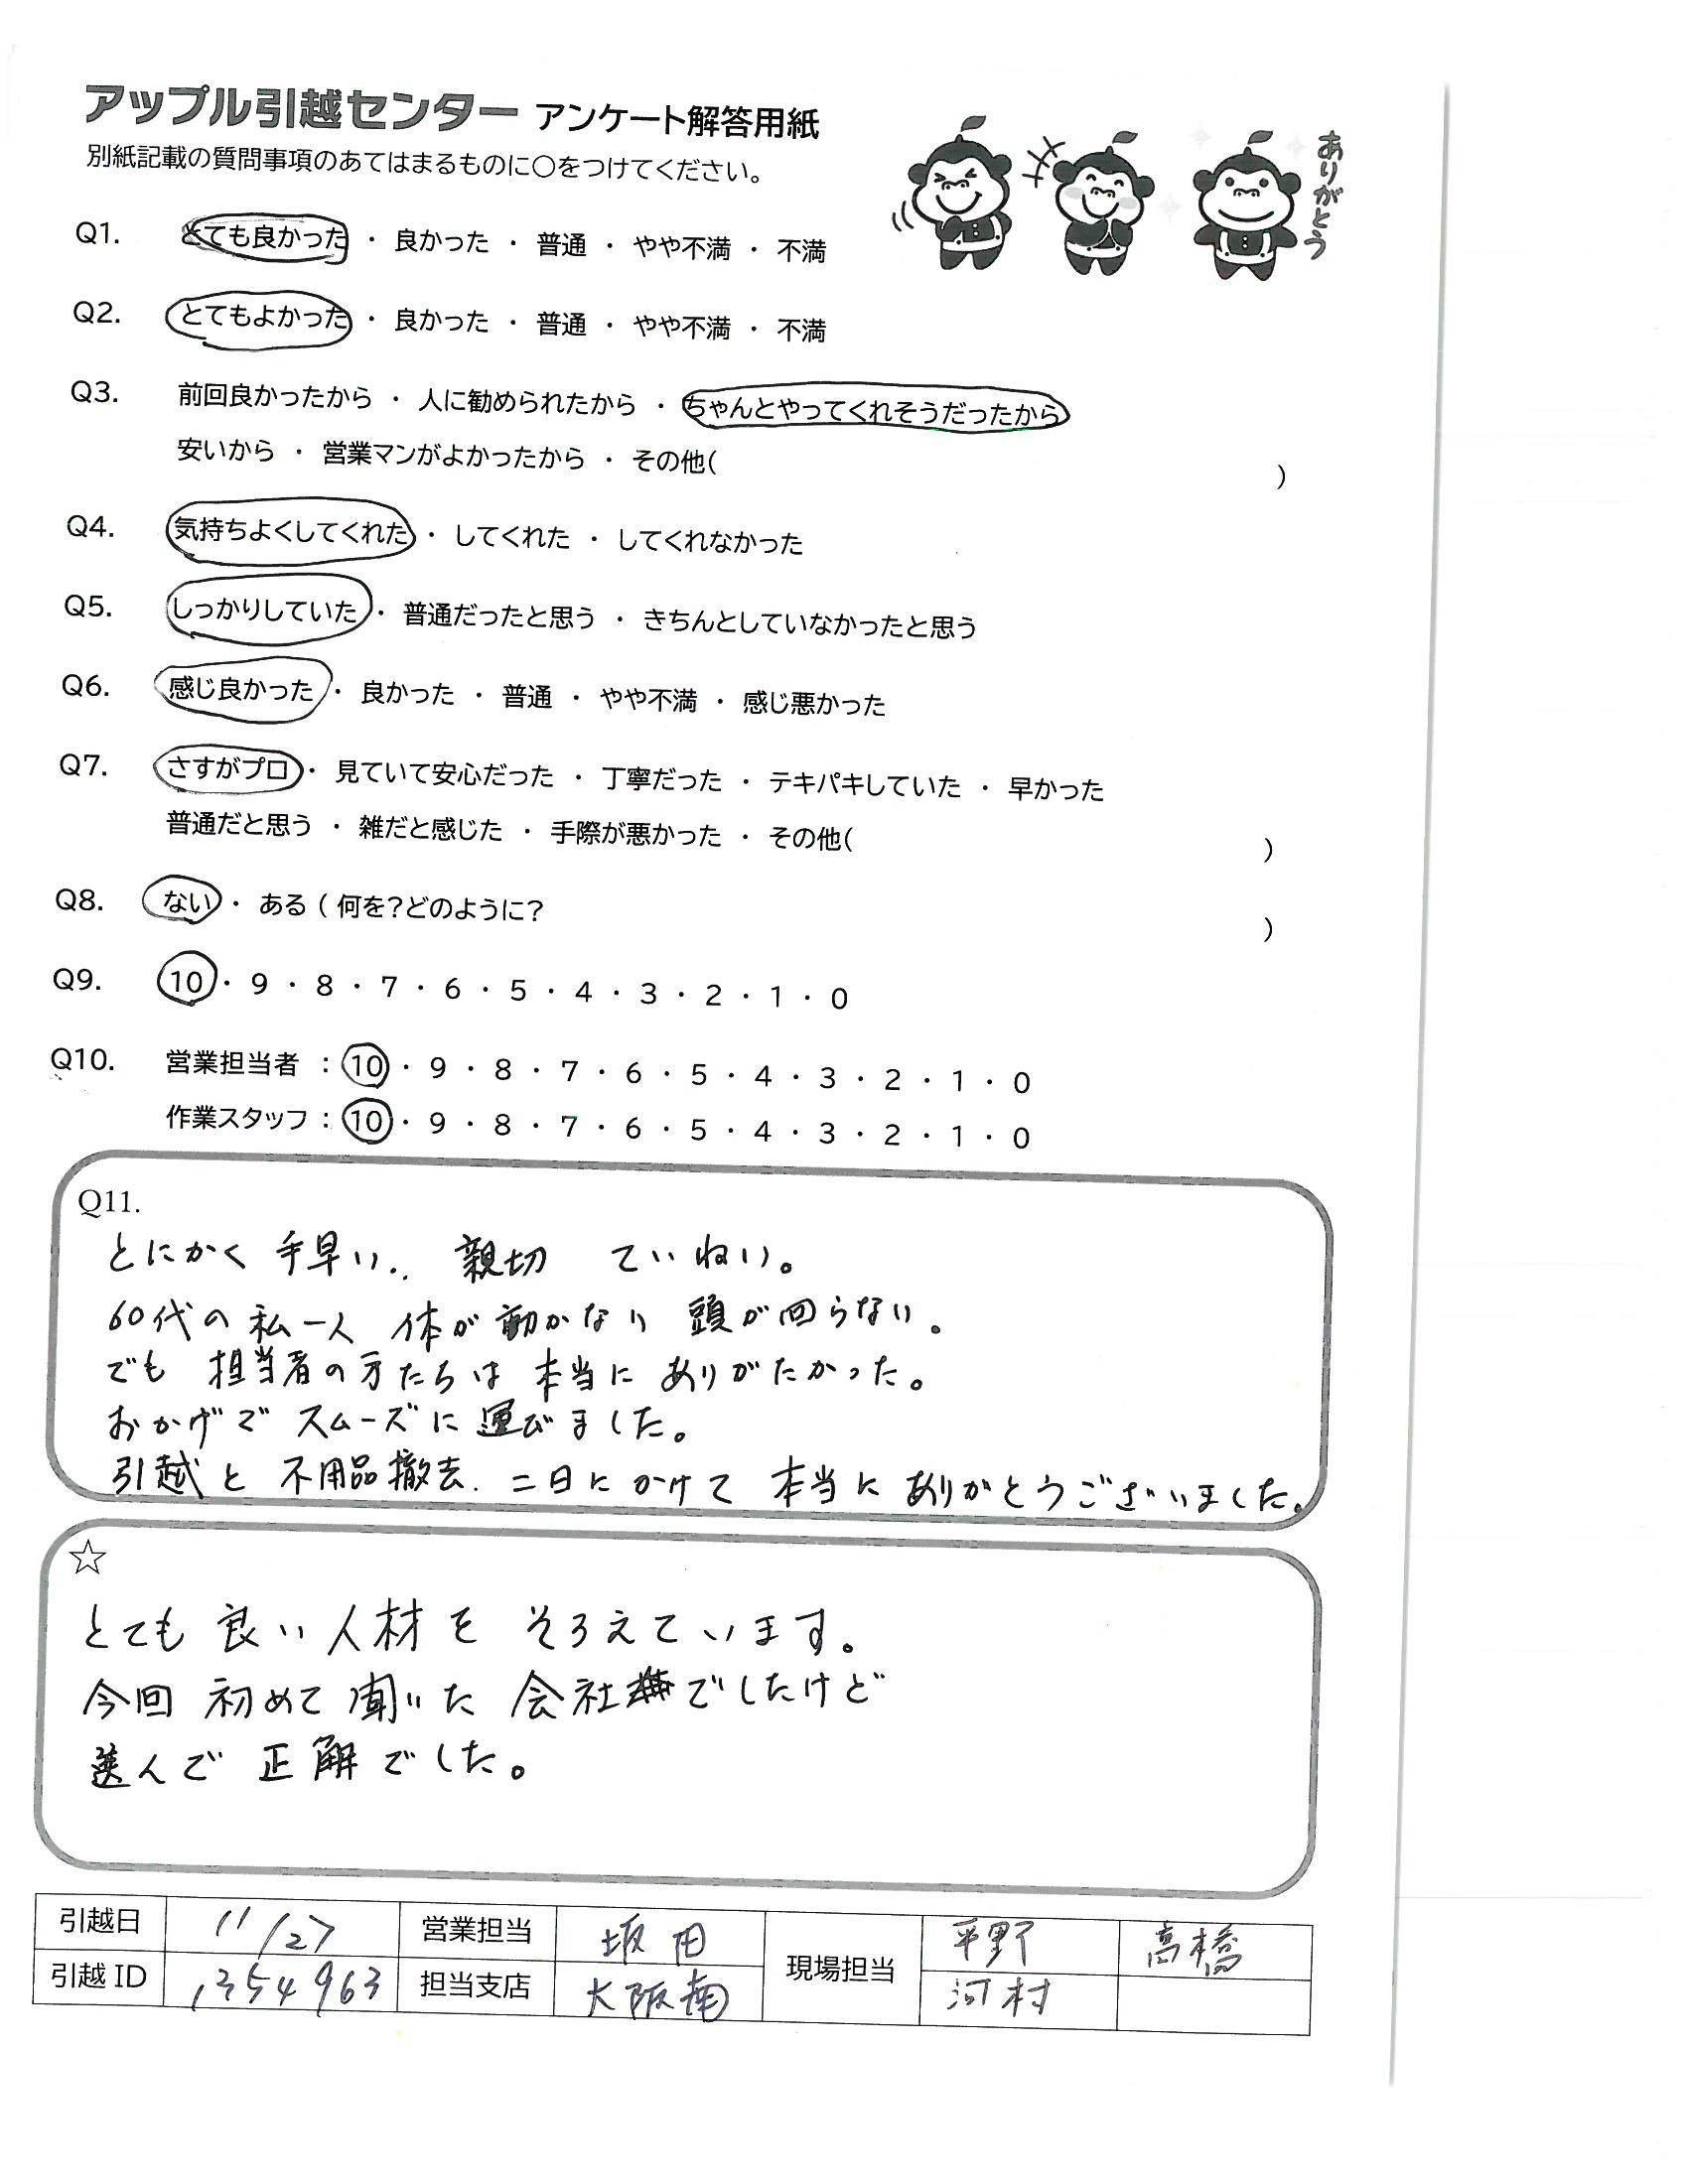 アップル引越センター アンケート解答用紙
別紙記載の質問事項のあてはまるものに〇をつけてください。
ありがとう
Q1. とても良かった ・ 良かった ・ 普通 ・ やや不満 ・ 不満
Q2. とてもよかった ・ 良かった ・ 普通 ・ やや不満 ・ 不満
Q3. 前回良かったから ・ 人に勧められたから ・ ちゃんとやってくれそうだったから
安いから ・ 営業マンがよかったから ・ その他( )
Q4. 気持ちよくしてくれた ・ してくれた ・ してくれなかった
Q5. しっかりしていた ・ 普通だったと思う ・ きちんとしていなかったと思う
Q6. 感じ良かった ・ 良かった ・ 普通 ・ やや不満 ・ 感じ悪かった
Q7. さすがプロ ・ 見ていて安心だった ・ 丁寧だった ・ テキパキしていた ・ 早かった
普通だと思う ・ 雑だと感じた ・ 手際が悪かった ・ その他( )
Q8. ない ・ ある ( 何を?どのように? )
Q9. 10 ・ 9 ・ 8 ・ 7 ・ 6 ・ 5 ・ 4 ・ 3 ・ 2 ・ 1 ・ 0
Q10. 営業担当者 : 10 ・ 9 ・ 8 ・ 7 ・ 6 ・ 5 ・ 4 ・ 3 ・ 2 ・ 1 ・ 0
作業スタッフ : 10 ・ 9 ・ 8 ・ 7 ・ 6 ・ 5 ・ 4 ・ 3 ・ 2 ・ 1 ・ 0
Q11.
とにかく 手早い.. 親切 ていねい。
60代の私一人 体が動かない 頭が回らない。
でも 担当者の方たちは 本当に ありがたかった。
おかげで スムーズに 運びました。
引越と 不用品撤去. 二日にかけて 本当に ありがとうございました。
☆
とても 良い人材を そろえています。
今回 初めて 聞いた 会社でしたけど
選んで 正解でした。
引越日 11/27 営業担当 坂田 現場担当 平野 高橋
引越 ID 1354963 担当支店 大阪南 河村